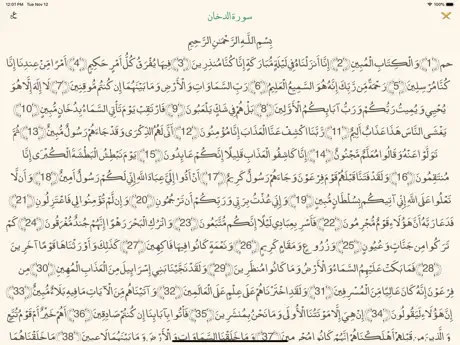 12:07 PM Tue Nov 12
سورة الدخان
بِسْمِ اللَّهِ الرَّحْمَنِ الرَّحِيمِ
حم ﴿1﴾ وَالْكِتَابِ الْمُبِينِ ﴿2﴾ إِنَّا أَنزَلْنَاهُ فِي لَيْلَةٍ مُّبَارَكَةٍ إِنَّا كُنَّا مُنذِرِينَ ﴿3﴾ فِيهَا يُفْرَقُ كُلُّ أَمْرٍ حَكِيمٍ ﴿4﴾ أَمْرًا مِّنْ عِندِنَا إِنَّا
كُنَّا مُرْسِلِينَ ﴿5﴾ رَحْمَةً مِّن رَّبِّكَ إِنَّهُ هُوَ السَّمِيعُ الْعَلِيمُ ﴿6﴾ رَبِّ السَّمَاوَاتِ وَالْأَرْضِ وَمَا بَيْنَهُمَا إِن كُنتُم مُّوقِنِينَ ﴿7﴾ لَا إِلَهَ إِلَّا هُوَ
يُحْيِي وَيُمِيتُ رَبُّكُمْ وَرَبُّ آبَائِكُمُ الْأَوَّلِينَ ﴿8﴾ بَلْ هُمْ فِي شَكٍّ يَلْعَبُونَ ﴿9﴾ فَارْتَقِبْ يَوْمَ تَأْتِي السَّمَاءُ بِدُخَانٍ مُّبِينٍ ﴿10﴾
يَغْشَى النَّاسَ هَذَا عَذَابٌ أَلِيمٌ ﴿11﴾ رَّبَّنَا اكْشِفْ عَنَّا الْعَذَابَ إِنَّا مُؤْمِنُونَ ﴿12﴾ أَنَّى لَهُمُ الذِّكْرَى وَقَدْ جَاءَهُمْ رَسُولٌ مُّبِينٌ ﴿13﴾ ثُمَّ
تَوَلَّوْا عَنْهُ وَقَالُوا مُعَلَّمٌ مَّجْنُونٌ ﴿14﴾ إِنَّا كَاشِفُو الْعَذَابِ قَلِيلًا إِنَّكُمْ عَائِدُونَ ﴿15﴾ يَوْمَ نَبْطِشُ الْبَطْشَةَ الْكُبْرَى إِنَّا
مُنتَقِمُونَ ﴿16﴾ وَلَقَدْ فَتَنَّا قَبْلَهُمْ قَوْمَ فِرْعَوْنَ وَجَاءَهُمْ رَسُولٌ كَرِيمٌ ﴿17﴾ أَنْ أَدُّوا إِلَيَّ عِبَادَ اللَّهِ إِنِّي لَكُمْ رَسُولٌ أَمِينٌ ﴿18﴾ وَأَن لَّا
تَعْلُوا عَلَى اللَّهِ إِنِّي آتِيكُم بِسُلْطَانٍ مُّبِينٍ ﴿19﴾ وَإِنِّي عُذْتُ بِرَبِّي وَرَبِّكُمْ أَن تَرْجُمُونِ ﴿20﴾ وَإِن لَّمْ تُؤْمِنُوا لِي فَاعْتَزِلُونِ ﴿21﴾
فَدَعَا رَبَّهُ أَنَّ هَؤُلَاءِ قَوْمٌ مُّجْرِمُونَ ﴿22﴾ فَأَسْرِ بِعِبَادِي لَيْلًا إِنَّكُم مُّتَّبَعُونَ ﴿23﴾ وَاتْرُكِ الْبَحْرَ رَهْوًا إِنَّهُمْ جُندٌ مُّغْرَقُونَ ﴿24﴾ كَمْ
تَرَكُوا مِن جَنَّاتٍ وَعُيُونٍ ﴿25﴾ وَزُرُوعٍ وَمَقَامٍ كَرِيمٍ ﴿26﴾ وَنَعْمَةٍ كَانُوا فِيهَا فَاكِهِينَ ﴿27﴾ كَذَلِكَ وَأَوْرَثْنَاهَا قَوْمًا آخَرِينَ
﴿28﴾ فَمَا بَكَتْ عَلَيْهِمُ السَّمَاءُ وَالْأَرْضُ وَمَا كَانُوا مُنظَرِينَ ﴿29﴾ وَلَقَدْ نَجَّيْنَا بَنِي إِسْرَائِيلَ مِنَ الْعَذَابِ الْمُهِينِ ﴿30﴾ مِن
فِرْعَوْنَ إِنَّهُ كَانَ عَالِيًا مِّنَ الْمُسْرِفِينَ ﴿31﴾ وَلَقَدِ اخْتَرْنَاهُمْ عَلَى عِلْمٍ عَلَى الْعَالَمِينَ ﴿32﴾ وَآتَيْنَاهُم مِّنَ الْآيَاتِ مَا فِيهِ بَلَاءٌ مُّبِينٌ ﴿33﴾
إِنَّ هَؤُلَاءِ لَيَقُولُونَ ﴿34﴾ إِنْ هِيَ إِلَّا مَوْتَتُنَا الْأُولَى وَمَا نَحْنُ بِمُنشَرِينَ ﴿35﴾ فَأْتُوا بِآبَائِنَا إِن كُنتُمْ صَادِقِينَ ﴿36﴾ أَهُمْ خَيْرٌ أَمْ قَوْمُ تُبَّعٍ
وَالَّذِينَ مِن قَبْلِهِمْ أَهْلَكْنَاهُمْ إِنَّهُمْ كَانُوا مُجْرِمِينَ ﴿37﴾ وَمَا خَلَقْنَا السَّمَاوَاتِ وَالْأَرْضَ وَمَا بَيْنَهُمَا لَاعِبِينَ ﴿38﴾ مَا خَلَقْنَاهُمَا